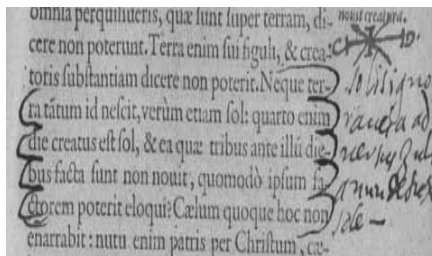 omnia perquisiueris, quæ sunt super terram, di-
cere non poterunt. Terra enim sui figuli, & crea-
toris substantiam dicere non poterit. Neque ter-
ra tãtum id nescit, verùm etiam sol: quarto enim
die creatus est sol, & ea quæ tribus ante illũ die-
bus facta sunt non nouit, quomodò ipsum fa-
ctorem poterit eloqui? Cælum quoque hoc non
enarrabit: nutu enim patris per Christum, cæ-